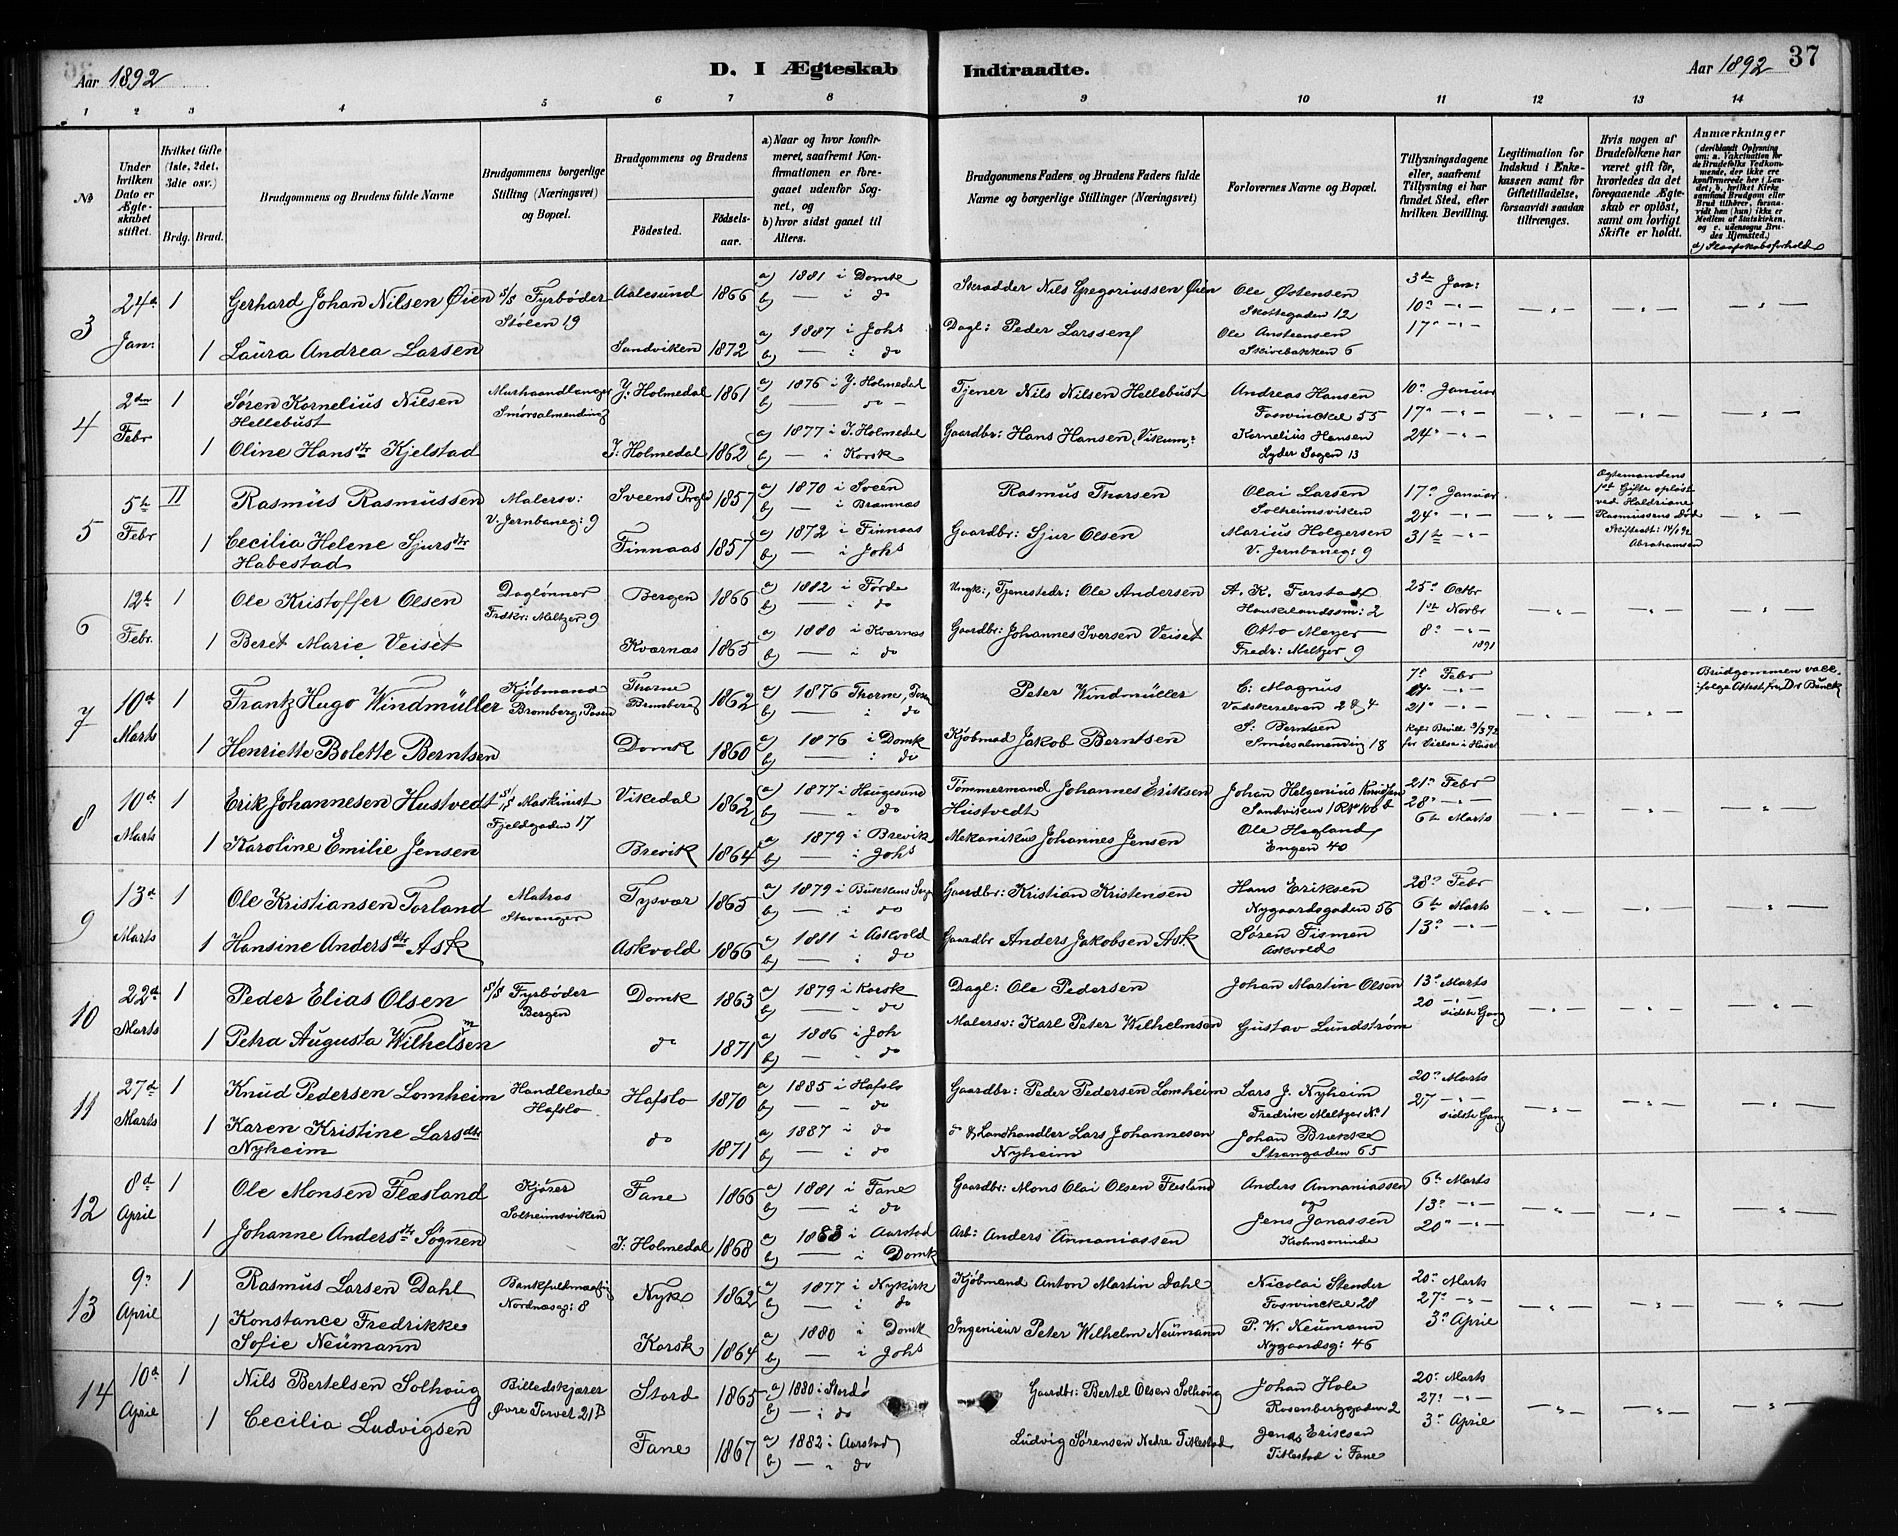 Aar 1892
D. I Ægteskab Indtraadte.
Aar 1892 37
1 2 3 4 5 6 7 8 9 10 11 12 13 14
No
Under hvilken Dato er Ægteskabet stiftet.
Hvilket Gifte (1ste, 2det, 3die osv.)
Brdg. Brud.
Brudgommens og Brudens fulde Navne
Brudgommens borgerlige Stilling (Næringsvei) og Bopæl.
Brudgommens og Brudens
Fødested. Fødselsaar.
a) Naar og hvor konfirmeret, saafremt Konfirmationen er foregaaet udenfor Sognet, og
b) hvor sidst gaaet til Alters.
Brudgommens Faders og Brudens Faders fulde Navne og borgerlige Stillinger (Næringsvei)
Forlovernes Navne og Bopæl.
Tillysningsdagene eller, saafremt Tillysning ei har fundet Sted, efter hvilken Bevilling.
Legitimation for Indskud i Enkekassen samt for Giftetilladelse, forsaavidt saadan tiltrænges.
Hvis nogen af Brudefolkene har været gift før, hvorledes da det foregaaende Ægteskab er opløst, samt om lovligt Skifte er holdt.
Anmærkninger
(deriblandt Oplysning om: a. Vakcination for de Brudefolks Vedkommende, der ikke ere konfirmerede her i Landet, b. hvilket Kirkesamfund Brudgom eller Brud tilhører, forsaavidt han (hun) ikke er Medlem af Statskirken, og c. udensogns Brudes Hjemsted.)
d) Slægtskabsforhold
3 24d Jan: 1 Gerhard Johan Nilsen Øien S/S Fyrbøder Stølen 19 Aalesund 1866 a) 1881 i Domk b) — i do Skrædder Nils Gregoriussen Øien Ole Østensen Skottegaden 12 3de Jan: 10' — 17' —
1 Laura Andrea Larsen Sandviken 1872 a) 1887 i Johs b) — i do Dagl: Peder Larssen Ole Anstensen Skivebakken 6
4 2den Febr 1 Søren Kornelius Nilsen Hellebust Murhaandlanger Smørsalmending Y. Holmedal 1861 a) 1876 i Y. Holmedal b) — do — Tjener Nils Nilsen Hellebust Andreas Hansen Foswinckel 55 10' Januar 17' — 24' —
1 Oline Hansdtr Kjelstad I. Holmedal 1862 a) 1877 i I. Holmedal b) — i Korsk Gaardbr: Hans Hansen, Vikum Kornelius Hansen Lyder Sagen 13
5 5te Febr II Rasmus Rasmussen Malersv: V. Jernbaneg: 9 Sveens Prgld 1857 a) 1870 i Sveen b) — i Bræmnæs Rasmus Thorsen Olai Larsen Solheimsviken 17' Januar 24' — 31te — Ægtemandens 1ste Gifte opløst ved Haldriane Rasmussens Død Skifteatt: 14/1 92 Abrahamsen
1 Cecilia Helene Sjursdtr Habestad Finnaas 1857 a) 1872 i Finnaas b) — i Johs Gaardbr: Sjur Olsen Marius Holgersen V. Jernbaneg: 9
6 12te Febr. 1 Ole Kristoffer Olsen Daglønner Frdkr: Meltzer 9 Bergen 1866 a) 1882 i Førde b) — i do Ungk:, Tjenestedr: Ole Andersen A. K. Farstad Haukelandssm: 2 25' Octbr 1ste Novbr 8' — 1891
1 Beret Marie Veiset Kværnæs 1865 a) 1880 i Kværnæs b) — i do Gaardbr: Johannes Iversen Veiset Otto Meyer Fredr: Meltzer 9
7 10d Marts 1 Frantz Hugo Windmüller Kjøbmand Bromberg, Posen Thorne Bromberg 1862 a) 1876 Thorne, Posen b) — i do Peter Windmüller C. Magnus Vadskerelven 2 & 4 7' Febr — 21' — Brudgommen vacc. ifølge Attest fra Dr
1 Henriette Bolette Berntsen Domk 1860 a) 1876 i Domk b) — i do Kjøbmad Jakob Berntsen S. Berntsen Smørsalmending 18 Kgl. Bevill 3/3 92 for Vielse i Huset
8 10d Marts 1 Erik Johannesen Hustvedt S/S Maskinist Fjeldgaden 17 Vikedal 1862 a) 1877 i Haugesund b) — do Tømmermand Johannes Eriksen Hustvedt Johan Helgenius Knudsen Sandviken 1 R No 106 b 21' Febr 28' — 6te Marts
1 Karoline Emilie Jensen Brevik 1864 a) 1879 i Brevik b) — i Johs Mekanikus Johannes Jensen Ole Hagland Engen 40
9 13d Marts 1 Ole Kristiansen Torland Matros Stavanger Tysvær 1865 a) 1879 i b) — i do Gaardbr: Kristian Kristensen Hans Eriksen Nygaardsgaden 56 28' Febr 6te Marts 13' —
1 Hansine Andersdtr Ask Askvold 1866 a) 1881 i Askvold b) — i do Gaardbr Anders Jakobsen Ask Søren Tismen Askvold
10 22d Marts 1 Peder Elias Olsen S/S Fyrbøder Bergen Domk 1863 a) 1879 i Korsk b) — do Dagl: Ole Pedersen Johan Martin Olsen 13' Marts 20 — sidste Gang
1 Petra Augusta Wilhelmsen do 1871 a) 1886 i Joh b) — do Malersv: Karl Peter Wilhelmsen Gustav Lundstrøm
11 27d Marts 1 Knud Pedersen Lomheim Handlende Hafslo Hafslo 1870 a) 1885 i Hafslo b) — do Gaardbr: Peder Pedersen Lomheim Lars J. Nyheim Fredrik Meltzer No 1 20' Marts 27 — sidste Gang
1 Karen Kristine Larsdtr Nyheim do 1871 a) 1887 i do b) — i do do & Landhandler Lars Johannesen Nyheim Johan Brække Strangaden 65
12 8d April 1 Ole Monsen Flæsland Kjører Solheimsviken Fane 1866 a) 1881 i Fane b) — i do Gaardbr: Mons Olai Olsen Flesland Anders Annaniassen og 6te Marts 13' — 20' —
1 Johanne Andersdtr Søgnen I. Holmedal 1868 a) 1883 i Aarstad b) — i Domk Arb: Anders Annaniassen Jens Jonassen Krohnsminde
13 9' April 1 Rasmus Larsen Dahl Bankfuldmægtig Nordnæsg: 8 Nyk 1862 a) 1877 i Nykirk b) — i do Kjøbmand Anton Martin Dahl Nicolai Stender Foswinckel 28 20' Marts 27' — 3' April
1 Konstance Fredrikke Sofie Neumann Korsk 1864 a) 1880 i Domk b) — i Johs Ingeniør Peter Wilhelm Neumann P. W. Neumann Nygaardsg: 46
14 10d April 1 Nils Bertelsen Solhoug Billedskjærer Øvre Torvet 21B Stord 1865 a) 1880 i Stordø b) — i do Gaardbr: Bertel Olsen Solhoug Johan Hole Rosenberggaden 2 20' Marts 27' — 3' April
1 Cecilia Ludvigsen Fane 1867 a) 1882 i Aarstad b) — do Ludvig Sørensen Nedre Titlestad Jens Eriksen Titlestad i Fane